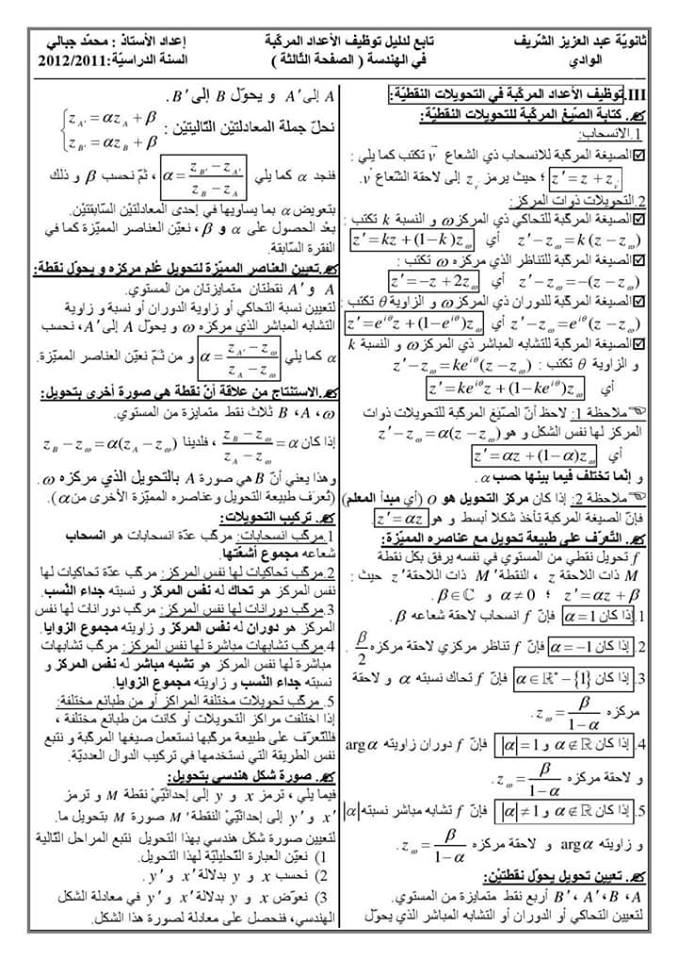 ثانويّة عبد العزيز الشّريف
الوادي
تابع لدليل توظيف الأعداد المركّبة
في الهندسة ( الصفحة الثالثة )
إعداد الأستاذ : محمّد جبالي
السنة الدراسيّة: 2012/2011
III. توظيف الأعداد المركّبة في التحويلات النقطيّة:
كتابة الصّيغ المركّبة للتحويلات النقطيّة:
1. الانسحاب:
الصيغة المركّبة للانسحاب ذي الشعاع v⃗ تكتب كما يلي :
z' = z + z_v ؛ حيث يرمز z_v إلى لاحقة الشّعاع v⃗.
2. التحويلات ذوات المركز:
الصيغة المركّبة للتحاكي ذي المركز ω و النسبة k تكتب :
z' − z_ω = k(z − z_ω) أي z' = kz + (1−k)z_ω
الصيغة المركّبة للتناظر الذي مركزه ω تكتب :
z' − z_ω = −(z − z_ω) أي z' = −z + 2z_ω
الصيغة المركّبة للدوران ذي المركز ω و الزاوية θ تكتب :
z' − z_ω = e^{iθ}(z − z_ω) أي z' = e^{iθ}z + (1−e^{iθ})z_ω
الصيغة المركّبة للتشابه المباشر ذي المركز ω و النسبة k
و الزاوية θ تكتب : z' − z_ω = ke^{iθ}(z − z_ω)
أي z' = ke^{iθ}z + (1−ke^{iθ})z_ω
ملاحظة 1: لاحظ أنّ الصّيغ المركّبة للتحويلات ذوات
المركز لها نفس الشكل و هو z' − z_ω = α(z − z_ω)
أي z' = αz + (1−α)z_ω
و إنّما تختلف فيما بينها حسب α.
ملاحظة 2: إذا كان مركز التحويل هو O (أي مبدأ المعلم)
فإنّ الصيغة المركبة تأخذ شكلا أبسط و هو z' = αz.
التّعرّف على طبيعة تحويل مع عناصره المميّزة:
f تحويل نقطي من المستوي في نفسه يرفق بكل نقطة
M ذات اللاحقة z ، النقطة M' ذات اللاحقة z' حيث :
z' = αz + β ؛ α ≠ 0 و β ∈ ℂ.
1. إذا كان α = 1 فإنّ f انسحاب لاحقة شعاعه β.
2. إذا كان α = −1 فإنّ f تناظر مركزي لاحقة مركزه β/2.
3. إذا كان α ∈ ℝ* − {1} فإنّ f تحاك نسبته α و لاحقة
مركزه z_ω = β/(1−α).
4. إذا كان α ∉ ℝ و |α| = 1 فإنّ f دوران زاويته arg α
و لاحقة مركزه z_ω = β/(1−α).
5. إذا كان α ∉ ℝ و |α| ≠ 1 فإنّ f تشابه مباشر نسبته |α|
و زاويته arg α و لاحقة مركزه z_ω = β/(1−α).
تعيين تحويل يحوّل نقطتيْن:
A، B، A'، B' أربع نقط متمايزة من المستوي.
لتعيين التحاكي أو الدوران أو التشابه المباشر الذي يحوّل
A إلى A' و يحوّل B إلى B'.
نحلّ جملة المعادلتيْن التّاليتيْن : { z_{A'} = αz_A + β
z_{B'} = αz_B + β
فنجد α كما يلي α = (z_{B'} − z_{A'})/(z_B − z_A) ، ثمّ نحسب β و ذلك
بتعويض α بما يساويها في إحدى المعادلتيْن السّابقتيْن.
بعْد الحصول على α و β ، نعيّن العناصر المميّزة كما في
الفقرة السّابقة.
تعيين العناصر المميّزة لتحويل عُلم مركزه و يحوّل نقطة:
A و A' نقطتان متمايزتان من المستوي.
لتعيين نسبة التحاكي أو زاوية الدوران أو نسبة و زاوية
التشابه المباشر الذي مركزه ω و يحوّل A إلى A'، نحسب
α كما يلي α = (z_{A'} − z_ω)/(z_A − z_ω) و من ثمّ نعيّن العناصر المميّزة.
الاستنتاج من علاقة أنّ نقطة هي صورة أخرى بتحويل:
ω، A، B ثلاث نقط متمايزة من المستوي.
إذا كان (z_B − z_ω)/(z_A − z_ω) = α ، فلدينا z_B − z_ω = α(z_A − z_ω)
وهذا يعني أنّ B هي صورة A بالتحويل الذي مركزه ω.
(تُعرَف طبيعة التحويل وعناصره المميّزة الأخرى من α).
تركيب التحويلات:
1. مركّب انسحابات: مركّب عدّة انسحابات هو انسحاب
شعاعه مجموع أشعّتها.
2. مركّب تحاكيات لها نفس المركز: مركّب عدّة تحاكيات لها
نفس المركز هو تحاك له نفس المركز و نسبته جداء النّسب.
3. مركّب دورانات لها نفس المركز: مركّب دورانات لها نفس
المركز هو دوران له نفس المركز و زاويته مجموع الزوايا.
4. مركّب تشابهات مباشرة لها نفس المركز: مركّب تشابهات
مباشرة لها نفس المركز هو تشابه مباشر له نفس المركز و
نسبته جداء النّسب و زاويته مجموع الزوايا.
5. مركّب تحويلات مختلفة المراكز أو من طبائع مختلفة:
إذا اختلفت مراكز التحويلات أو كانت من طبائع مختلفة ،
فللتّعرّف على طبيعة مركّبها نستعمل صيغها المركّبة و نتبع
نفس الطريقة التي نستخدمها في تركيب الدوال العدديّة.
صورة شكل هندسي بتحويل:
فيما يلي ، نرمز x و y إلى إحداثيّيْ نقطة M و نرمز
x' و y' إلى إحداثيّيْ النقطة M' صورة M بتحويل ما.
لتعيين صورة شكل هندسي بهذا التحويل نتبع المراحل التّالية
1) نعيّن العبارة التّحليليّة لهذا التحويل.
2) نحسب x و y بدلالة x' و y'.
3) نعوّض x و y بدلالة x' و y' في معادلة الشكل
الهندسي، فنحصل على معادلة لصورة هذا الشكل.